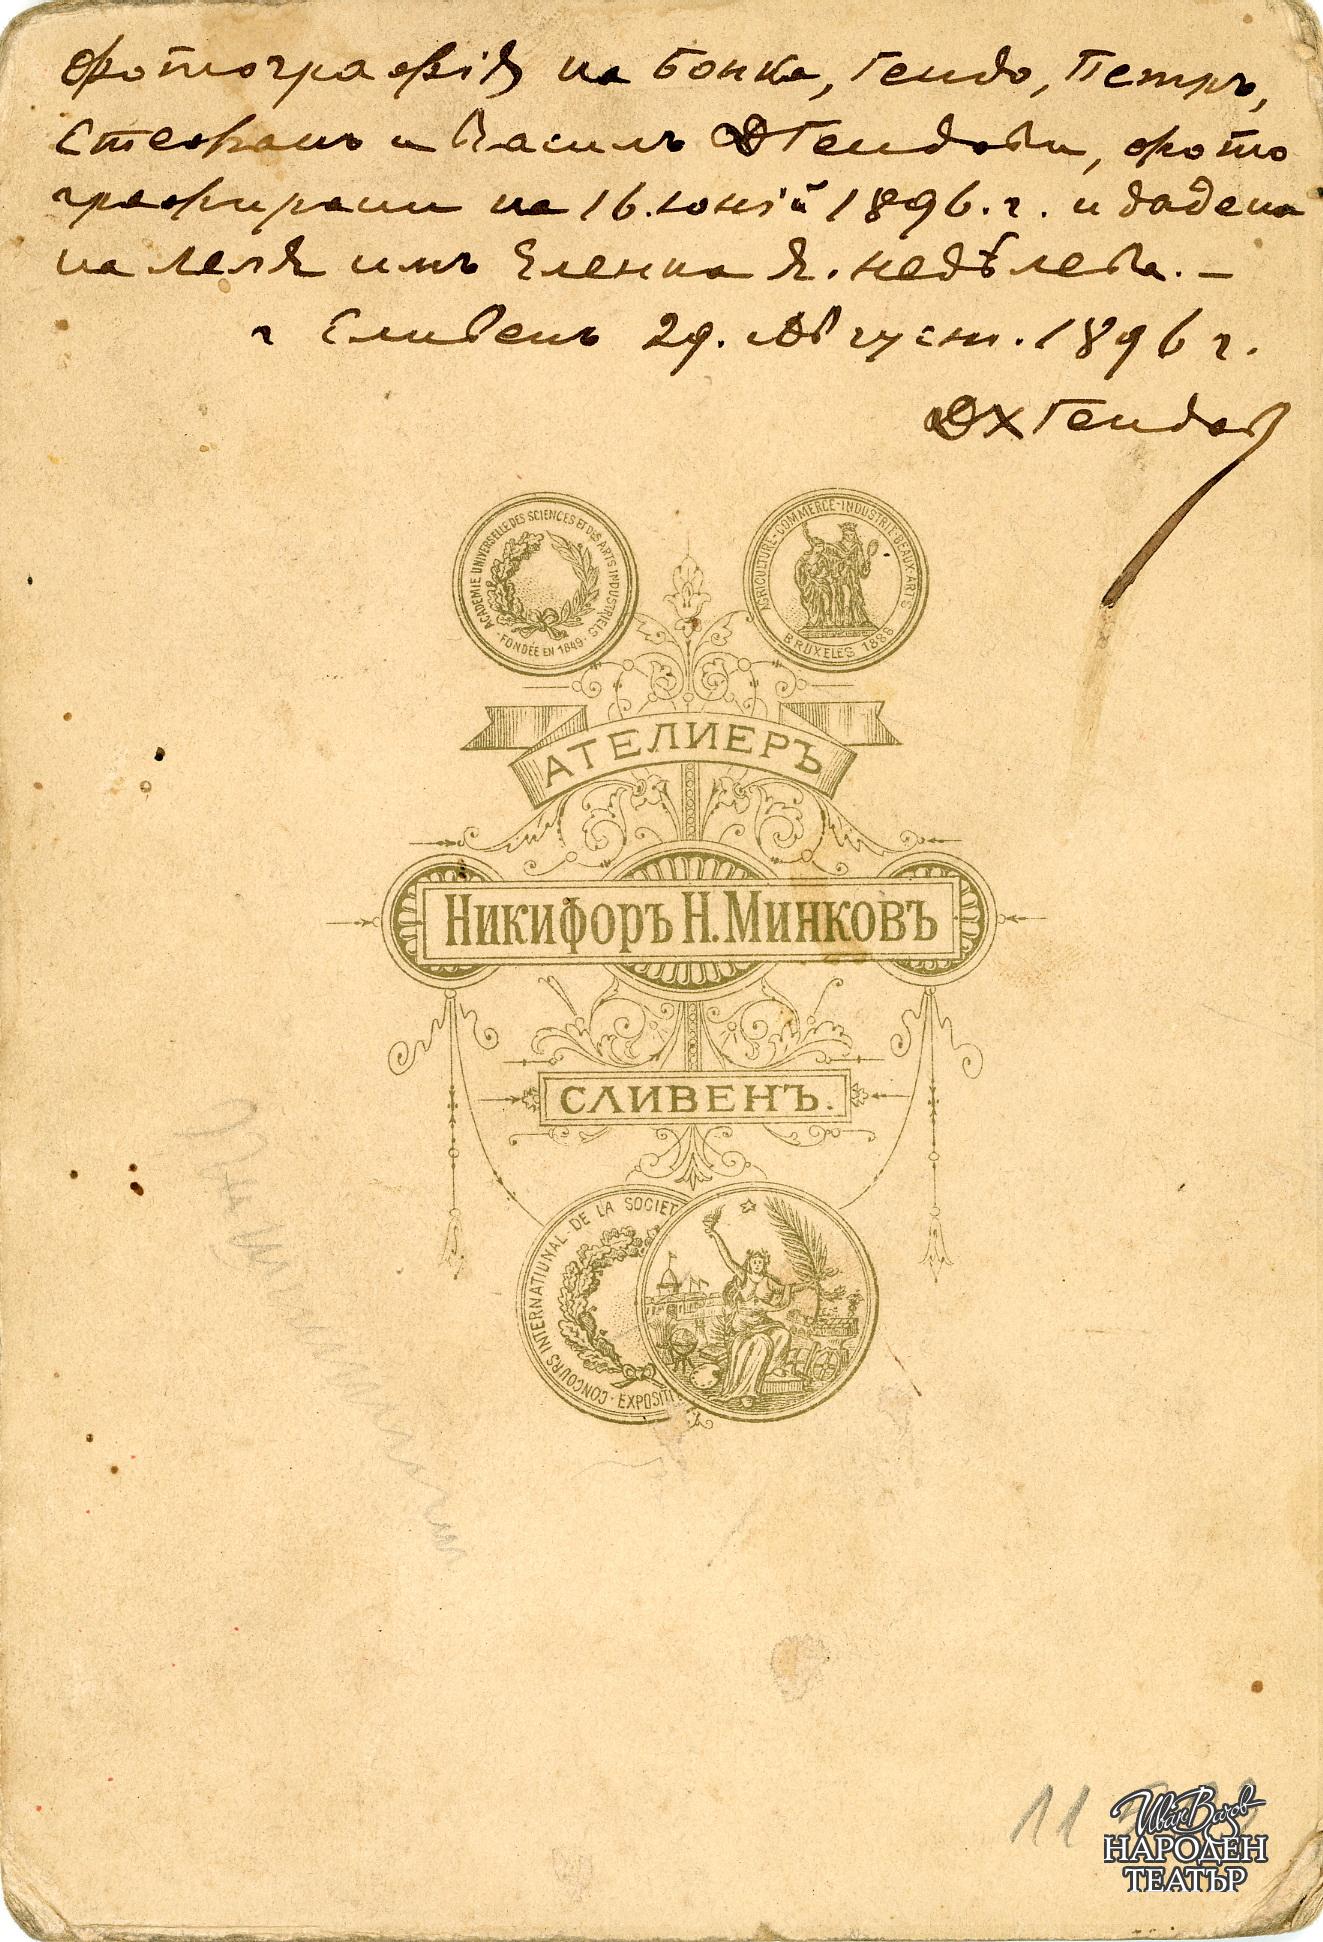 фотография на Бонка, Гендо, Петръ,
Стефанъ и Василъ Гендови, фото
графирани на 16. юний 1896. г. и дадена
на леля имъ Еленка Я. недѣлева. –
г Сливенъ 29. Августъ. 1896 г.
ДХГендов
ACADEMIE UNIVERSELLE DES SCIENCES ET DES ARTS INDUSTRIELS
· FONDÉE EN 1849 ·
AGRICULTURE-COMMERCE-INDUSTRIE-BEAUX-ARTS
BRUXELES 1888
АТЕЛИЕРЪ
НИКИФОРЪ Н. МИНКОВЪ
СЛИВЕНЪ.
CONCOURS INTERNATIUNAL · DE LA SOCIET
· EXPOSITI
11
Иван Вазов
НАРОДЕН
ТЕАТЪР